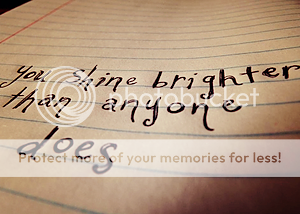 you shine brighter
than anyone
photobucket
does
Protect more of your memories for less!